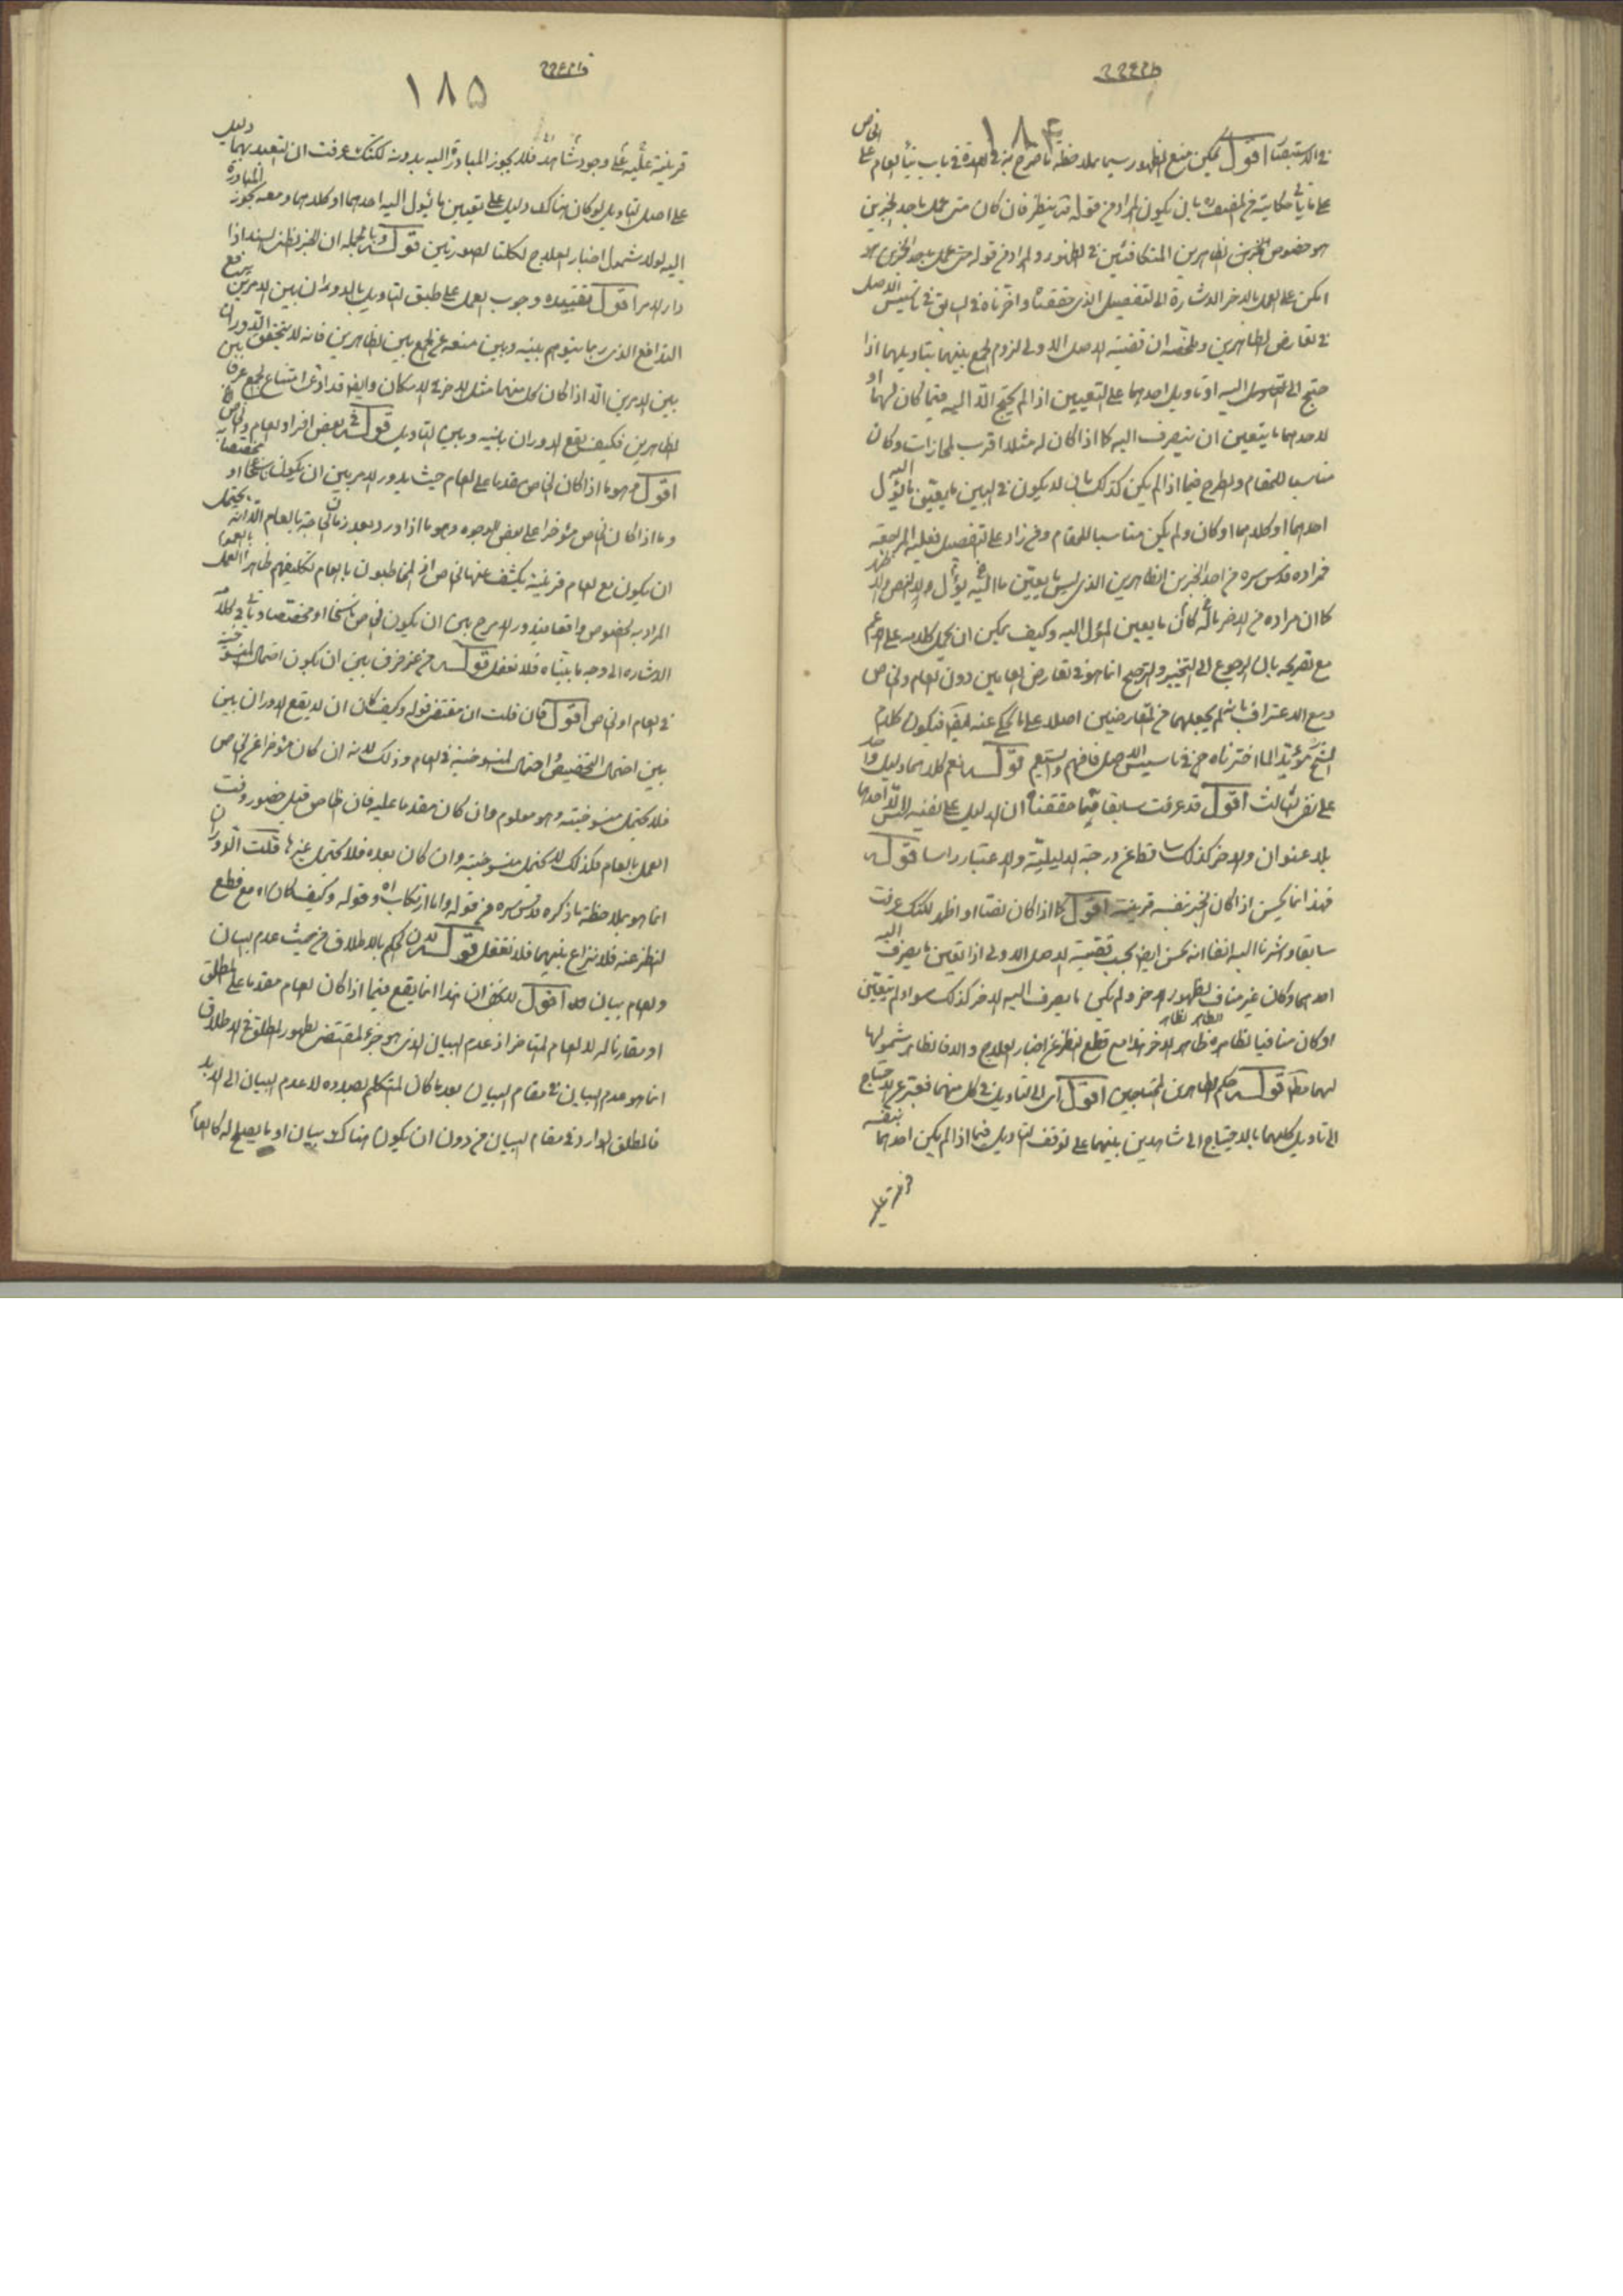 ١٨٤
في الاستبصار اقول يمكن منع الظهور سيما بملاحظة ما صرح به في العدة في باب بناء العام على الخاص
على ما يأتي حكايته في المصنف بان يكون المراد من قوله ينظر فان كان متى عمل باحد الخبرين
هو خصوص الخبرين الظاهرين المتكافئين في الظهور والمراد من قوله متى عمل باحد الخبرين
امكن على العمل بالاخر الاشارة الى التفصيل الذي حققناه واخترناه في السابق في تأسيس الاصل
في تعارض الظاهرين وملخصه ان قضية الاصل الاولى لزوم الجمع بينهما بتاويلهما اذا
احتيج الى التاويل اليه او تاويل احدهما على التعيين اذا لم يحتج الا اليه فيما كان لهما او
لاحدهما ما يتعين ان ينصرف اليه كما اذا كان له مثلا اقرب المجازات وكان
مناسبا للمقام والطرح فيما اذا لم يكن كذلك بان لا يكون في البين ما يعين ما يؤل اليه
احدهما او كلاهما او كان ولم يكن مناسبا للمقام ومن زاد على التفصيل فعليه المراجعة
فمراده قدس سره من احد الخبرين الظاهرين الذي ليس ما يعين ما اليه يؤل
كما ان مراده من الاخر ما له كان ما يعين المؤل اليه وكيف يمكن ان يحمل كلامه على
مع تصريحه بان الرجوع الى التخيير والترجيح انما هو في تعارض العامين دون العام والخاص
ومع الاعتراف بانه لم يجعلهما من المتعارضين اصلا على ما يحكى عنه فيكون كلام
الشيخ مؤيدا لما اخترناه في تاسيس الاصل فافهم واستقم قوله نعم كلاهما دليل واحد
على نفى الثالث اقول قد عرفت سابقا فيما حققناه ان الدليل على نفيه ليس الا احدهما
بلا عنوان والاخر كذلك ساقط عن درجة الدليلية والاعتبار راسا قوله
فهذا انما يحسن اذا كان الخبر بنفسه قرينة اقول كما اذا كان نصا او اظهر لكنك عرفت
سابقا واشرنا اليه انفا انه يحسن ايضا بحسب قضية الاصل الاولى اذا تعين ما يصرف اليه
احدهما وكان غير مناف لظهور الاخر ولم يكن ما يصرف اليه الاخر كذلك سواء لم يتعين
او كان منافيا لظاهره ظاهر الاخر هذا مع قطع النظر عن اخبار العلاج والا فالظاهر شمولها
لهما مطلقا قوله حكم الظاهرين المحتاجين اقول اى الى التاويل في كل منهما فعبر عن الاحتياج
الى تاويل كليهما بالاحتياج الى شاهدين بينهما على توقف التاويل فيما اذا لم يكن احدهما بنفسه
قرينة على
١٨٥
قرينة عليه على وجود شاهد فلا يجوز المبادرة اليه بدونه لكنك عرفت ان التعبد بهما دليل
على اصل التاويل لو كان هناك دليل على تعيين ما يئول اليه احدهما او كلاهما ومعه يجوز المبادرة
اليه لولا شمول اخبار العلاج لكلتا الصورتين قوله وبالجملة ان الخبر الظنى السند اذا
دار الامر اقول تقييده وجوب العمل على طبق التاويل بالدوران بين الامرين يرفع
التدافع الذي ربما يتوهم بينه وبين منعه عن الجمع بين الظاهرين فانه لا يتحقق الدوران
بين الامرين الا اذا كان كل منهما مثل الاخر في الامكان وايضا قد ادعى امتناع الجمع عرفا بين
الظاهرين فكيف يقع الدوران بينه وبين التاويل قوله في بعض افراد العام والخاص
اقول وهو ما اذا كان الخاص مقدما على العام حيث يدور الامر بين ان يكون ناسخا او مخصصا
وما اذا كان الخاص مؤخرا على بعض الوجوه وهو ما اذا ورد بعد زمان الحاجة بالعام الا انه يحتمل
ان يكون مع العام قرينة يكشف عنها الخاص اذ المخاطبون بالعام تكليفهم ظاهرا العمل بالعموم
المراد به الخصوص واقعا فيدور الامر بين ان يكون الخاص ناسخا او مخصصا وياتي في كلامه
الاشارة الى وجه ما بيناه فلا تغفل قوله من غير فرق بين ان يكون احتمال المنسوخية
في العام او الخاص اقول فان قلت ان مقتضى قوله وكيف كان ان لا يقع الدوران بين
بين احتمال التخصيص واحتمال المنسوخية في العام وذلك لانه ان كان مؤخرا عن الخاص
فلا يحتمل منسوخيته وهو معلوم وان كان مقدما عليه فان الخاص قبل حضور وقت
العمل بالعام فكذلك لا يحتمل منسوخيته وان كان بعده فلا يحتمل غيرها قلت الدوران
انما هو بملاحظة ما ذكره قدس سره من قوله واما ارتكاب اه وقوله وكيف كان اه مع قطع
النظر عنه فلا نزاع بينهما فلا تغفل قوله لان الحكم بالاطلاق من حيث عدم البيان
والعام بيان اه اقول لا يخفى ان هذا انما يقع فيما اذا كان العام مقدما على المطلق
او مقارنا له لا العام المتاخر اذ عدم البيان الذي هو جزء المقتضى لظهور المطلق في الاطلاق
انما هو عدم البيان في مقام البيان بعد ما كان المتكلم بصدده لا عدم البيان الى الابد
فالمطلق الوارد في مقام البيان من دون ان يكون هناك بيان او ما يصلح له كالعام